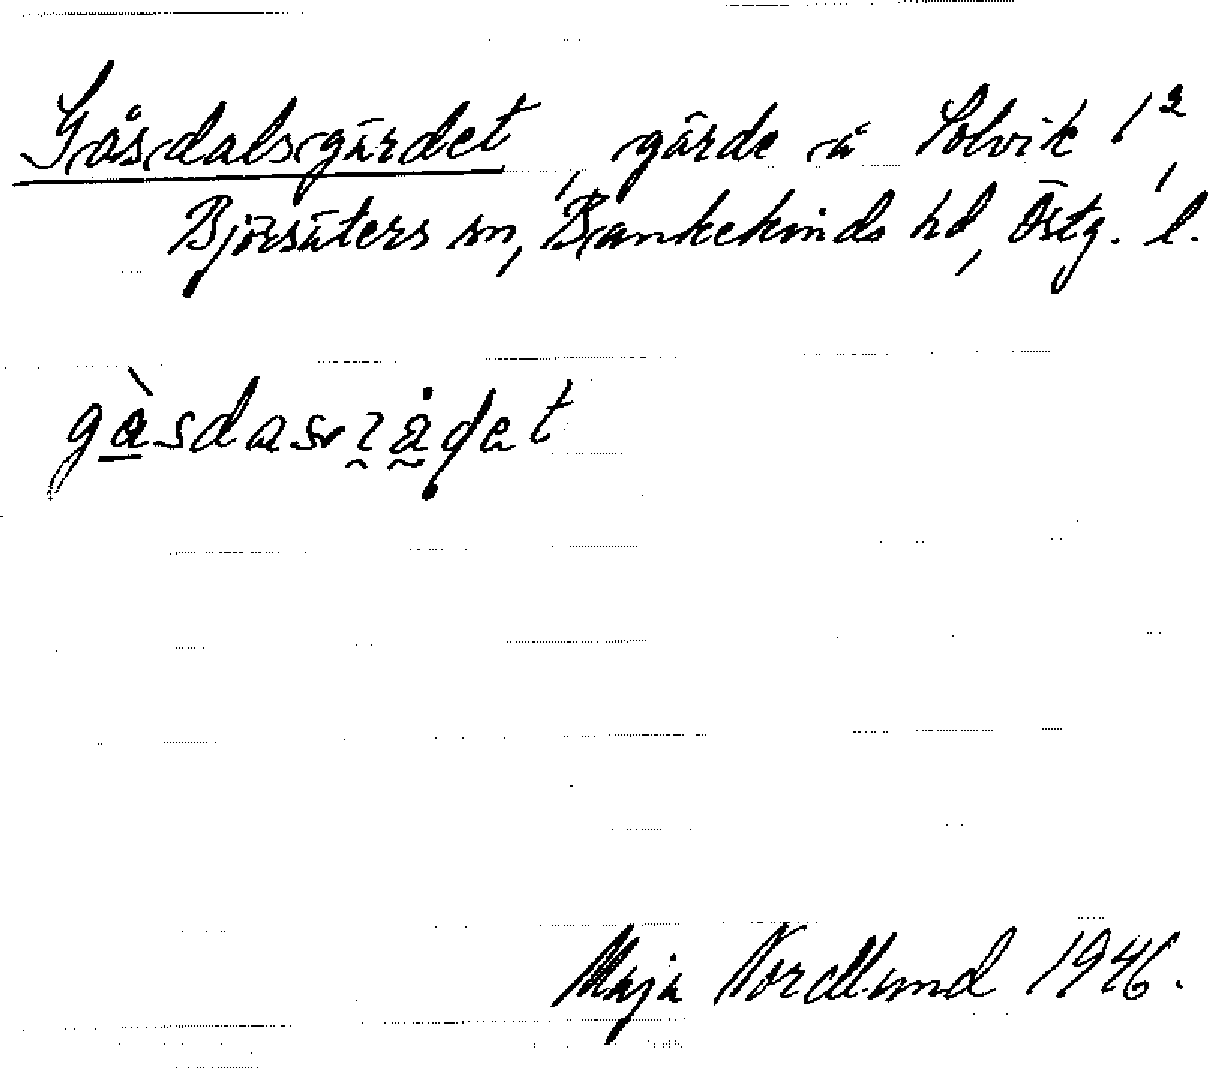 Gåsdalsgärdet, gärde å Solvik 1²,
Björsäters sn, Bankekinds hd, Östg. l.
Maja Nordlund 1946.